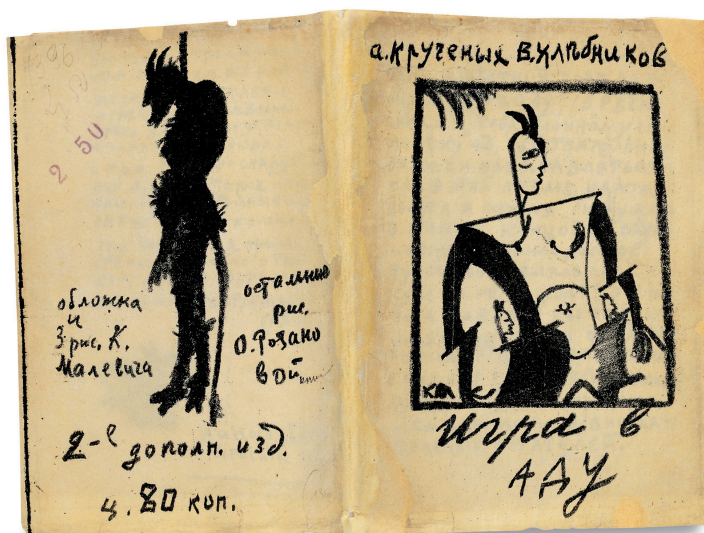 2 50
обложка
и
3 рис. К.
Малевича
остальные
рис.
О. Розано
вой
2-е дополн. изд.
ц. 80 коп.
а. Крученых В. Хлѣбников
КМ
игра в
АДУ